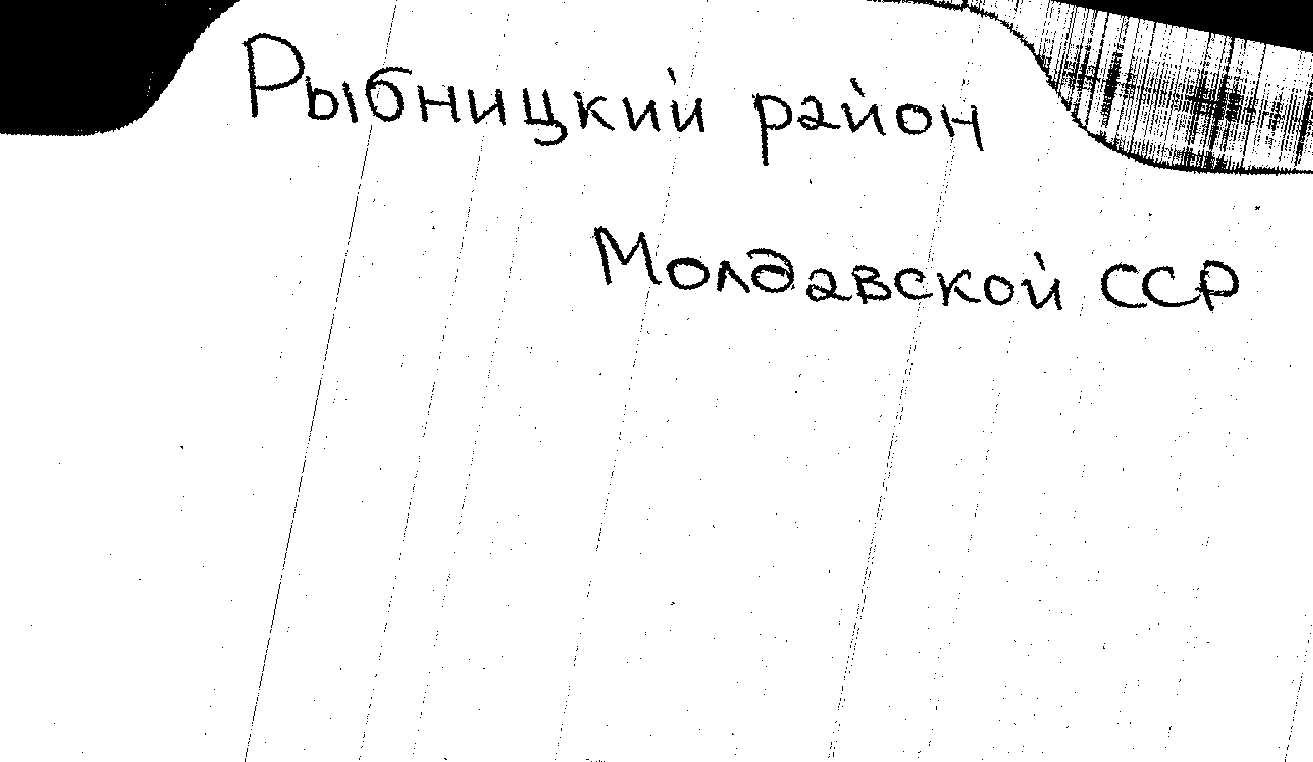 Рыбницкий район
Молдавской ССР